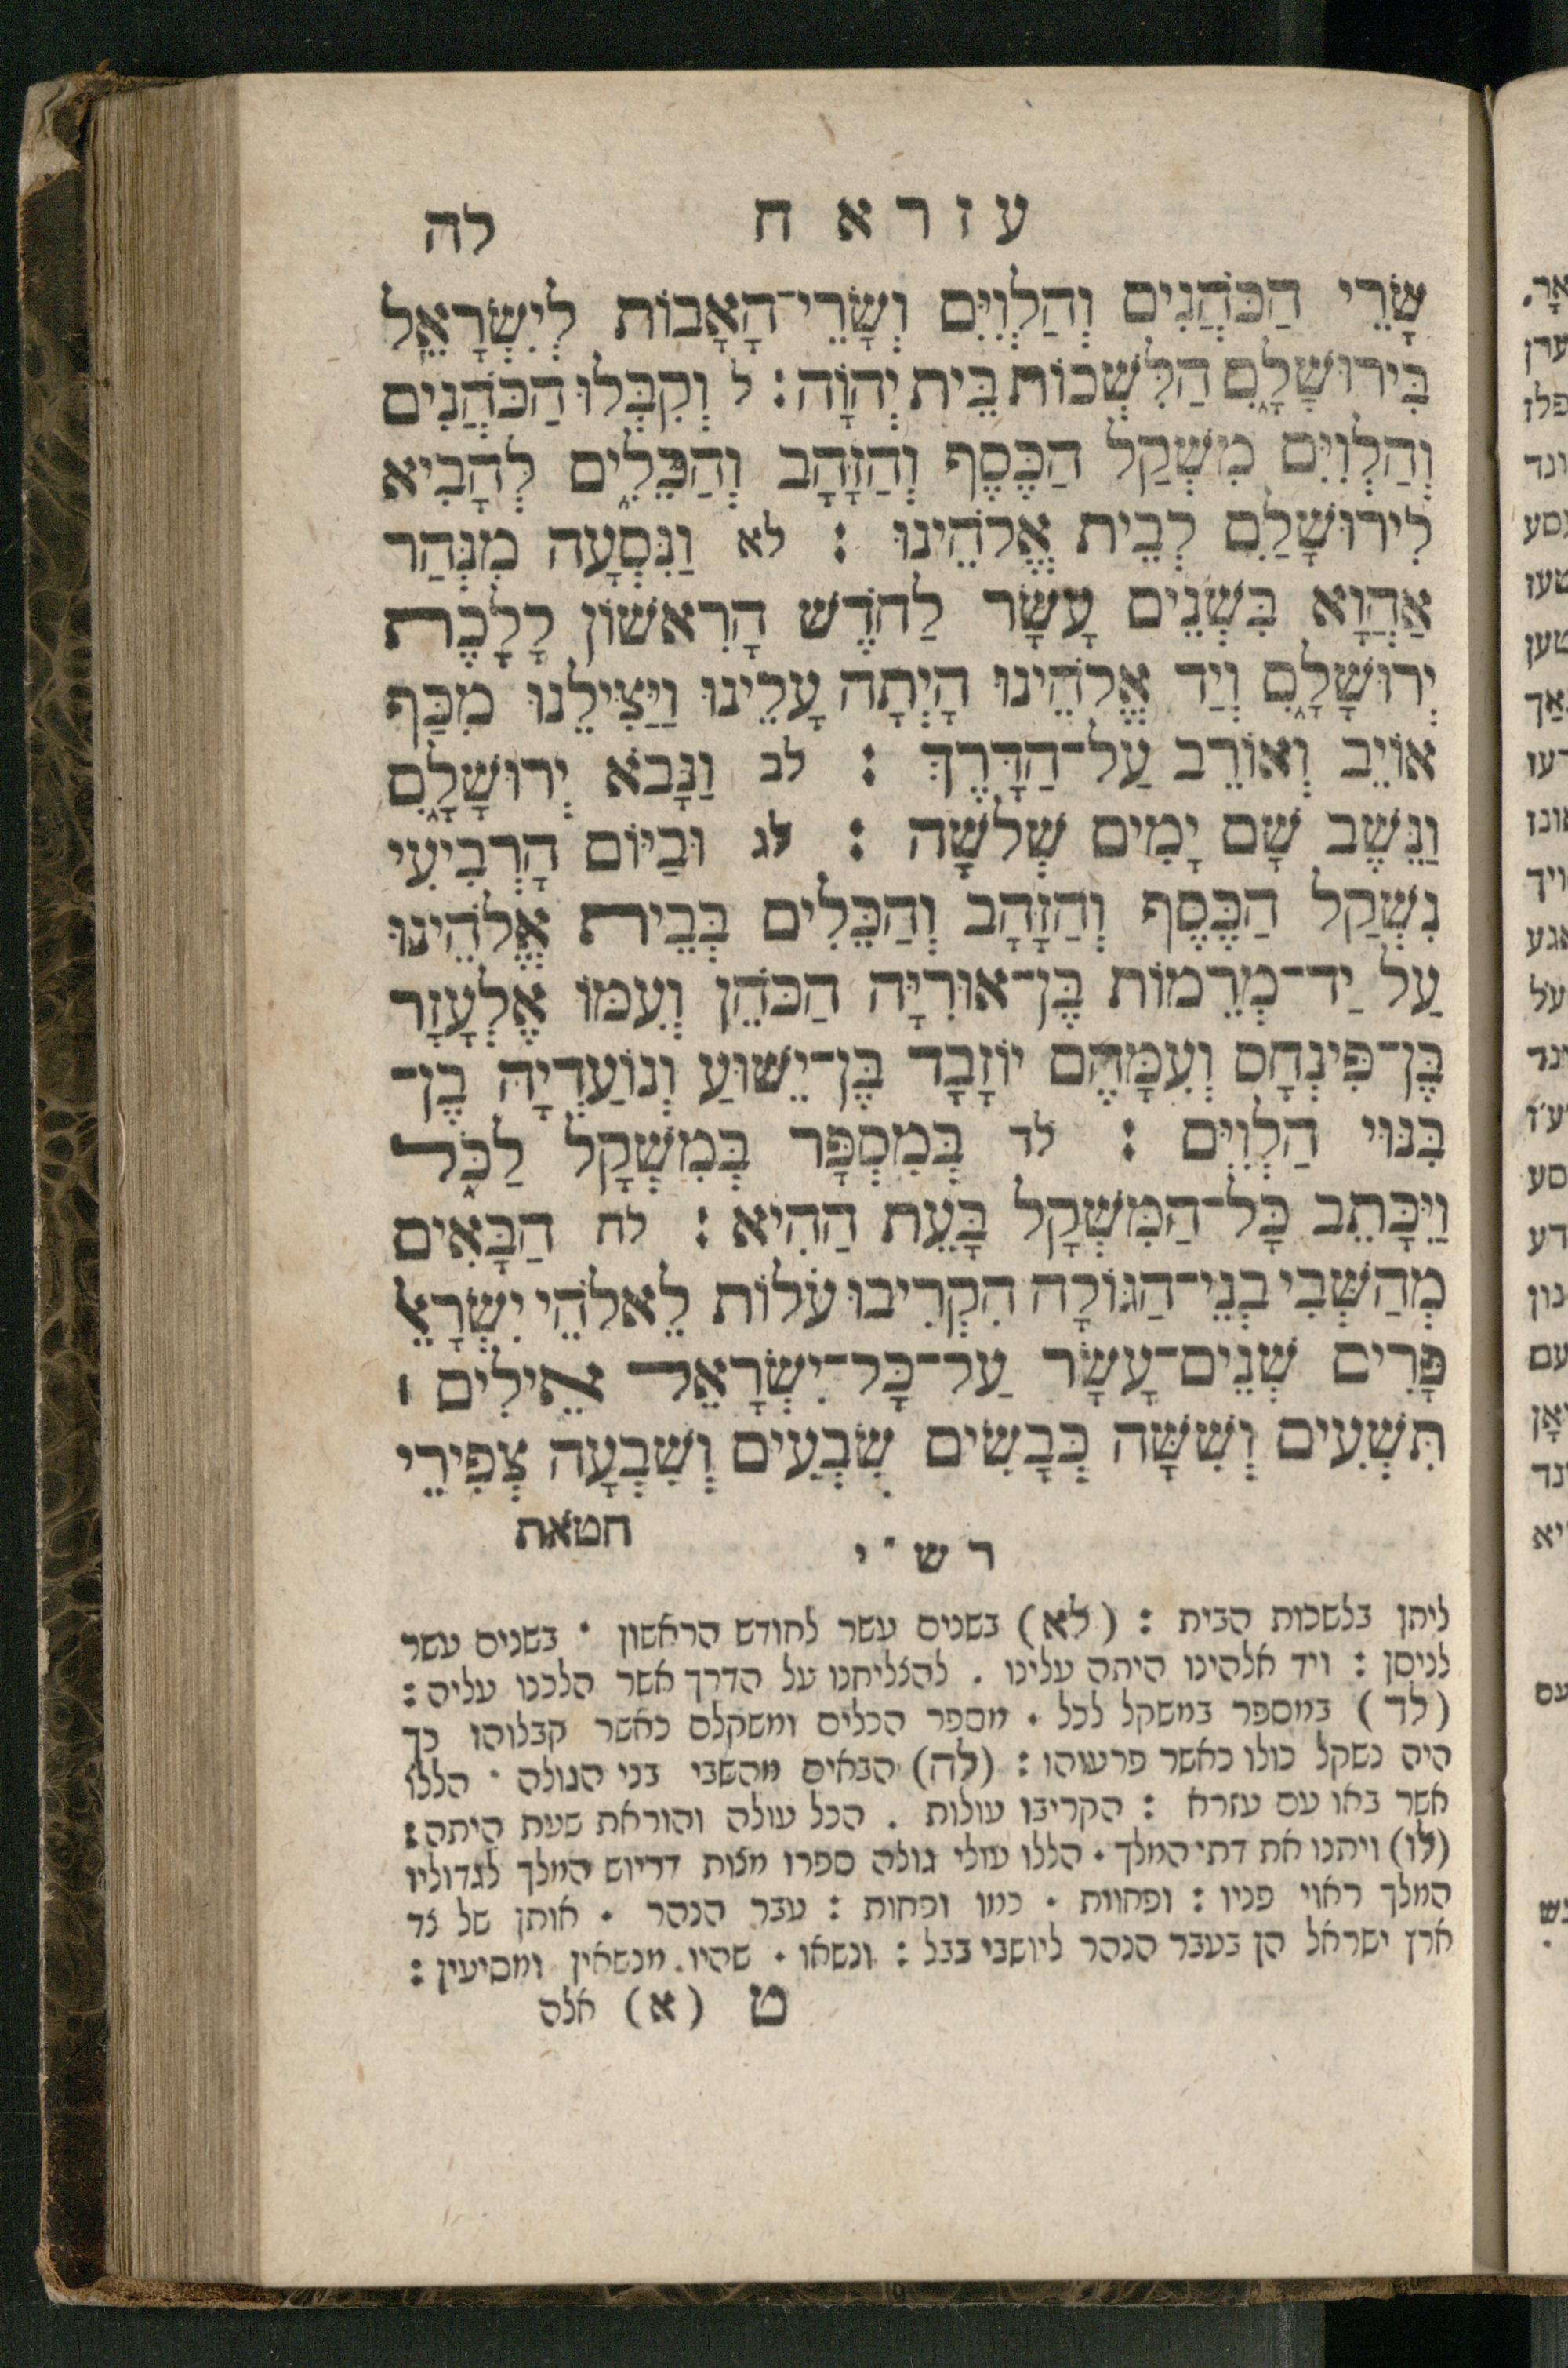 עזרא ח לה
שָׂרֵי הַכֹּהֲנִים וְהַלְוִיִּם וְשָׂרֵי־הָאָבוֹת לְיִשְׂרָאֵל
בִּירוּשָׁלָ֑םִ הַלִּשְׁכוֹת בֵּית יְהוָֹה׃ ל וְקִבְּלוּ הַכֹּהֲנִים
וְהַלְוִיִּם מִשְׁקַל הַכֶּסֶף וְהַזָּהָב וְהַכֵּלִ֑ים לְהָבִיא
לִירוּשָׁלַםִ לְבֵית אֱלֹהֵינוּ׃ לא וַנִּסְעָה מִנְּהַר
אַהֲוָא בִּשְׁנֵים עָשָׂר לַחֹדֶשׁ הָרִאשׁוֹן לָלֶכֶת
יְרוּשָׁלָ֑םִ וְיַד אֱלֹהֵינוּ הָיְתָה עָלֵינוּ וַיַּצִּילֵנוּ מִכַּף
אוֹיֵב וְאוֹרֵב עַל־הַדָּרֶךְ׃ לב וַנָּבֹא יְרוּשָׁלָ֑םִ
וַנֵּשֶׁב שָׁם יָמִים שְׁלשָׁה׃ לג וּבַיּוֹם הָרְבִיעִי
נִשְׁקַל הַכֶּסֶף וְהַזָּהָב וְהַכֵּלִים בְּבֵית אֱלֹהֵינוּ
עַל יַד־מְרֵמוֹת בֶּן־אוּרִיָּה הַכֹּהֵן וְעִמּוֹ אֶלְעָזָר
בֶּן־פִּינְחָס וְעִמָּהֶם יוֹזָבָד בֶּן־יֵשׁוּעַ וְנוֹעַדְיָה בֶן־
בִּנּוּי הַלְוִיִּם׃ לד בְּמִסְפָּר בְּמִשְׁקָל לַכֹּ֑ל
וַיִּכָּתֵב כָּל־הַמִּשְׁקָל בָּעֵת הַהִיא׃ לח הַבָּאִים
מֵהַשְּׁבִי בְנֵי־הַגּוֹלָה הִקְרִיבוּ עֹלוֹת לֵאלֹהֵי יִשְׂרָאֵל
פָּרִים שְׁנֵים־עָשָׂר עַל־כָּל־יִשְׂרָאֵל אֵילִים ׀
תִּשְׁעִים וְשִׁשָּׁה כְּבָשִׂים שִׁבְעִים וְשִׁבְעָה צְפִירֵי
חטאת
רש״י
ליתן בלשכות הבית : (לא) בשנים עשר לחודש הראשון · בשנים עשר
לניסן : ויד אלהינו היתה עלינו . להצליחנו על הדרך אשר הלכנו עליה :
(לד) במספר במשקל לכל · מספר הכלים ומשקלם כאשר קבלוהו כך
היה נשקל כולו כאשר פרעוהו : (לה) הבאים מהשבי בני הגולה · הללו
אשר באו עם עזרא : הקריבו עולות . הכל עולה והוראת שעת היתה :
(לו) ויתנו את דתי המלך · הללו עולי גולה ספרו מצות דריוש המלך לגדוליו
המלך ראוי פניו : ופחוות · כמו ופחות : עבר הנהר · אותן של צד
ארץ ישראל הן בעבר הנהר ליושבי בבל : ונשאו · שהיו מנשאין ומסיעין :
ט (א) אלה